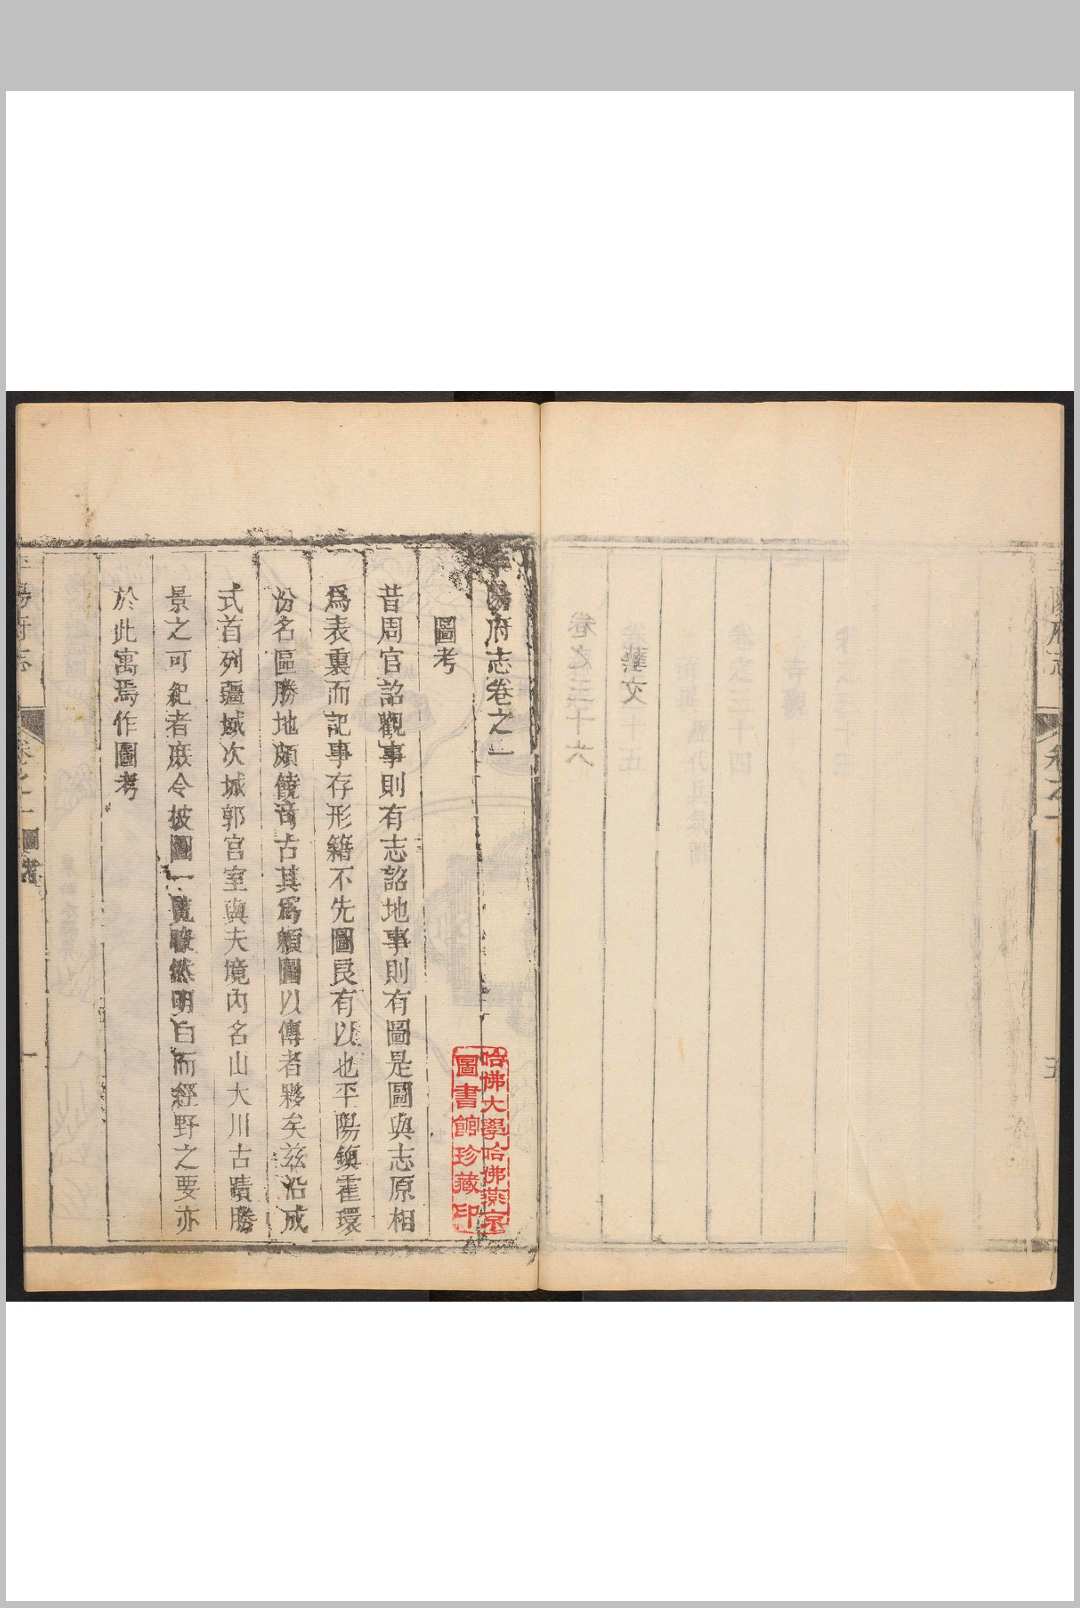 卷之三十六
藝文
陽府志卷之一
圖考
昔周官詔觀事則有志詔地事則有圖是圖與志原相
爲表裏而記事存形籍不先圖良有以也平陽鎮霍環
汾名區勝地頗饒奇古其爲頫圖以傳者夥矣兹沿成
式首列疆域次城郭宮室與夫境內名山大川古蹟勝
景之可紀者庶令披圖一覽瞭然明白而經野之要亦
於此寓焉作圖考
哈佛大學哈佛燕京
圖書館珍藏印
陽府志 卷之一 圖考 一